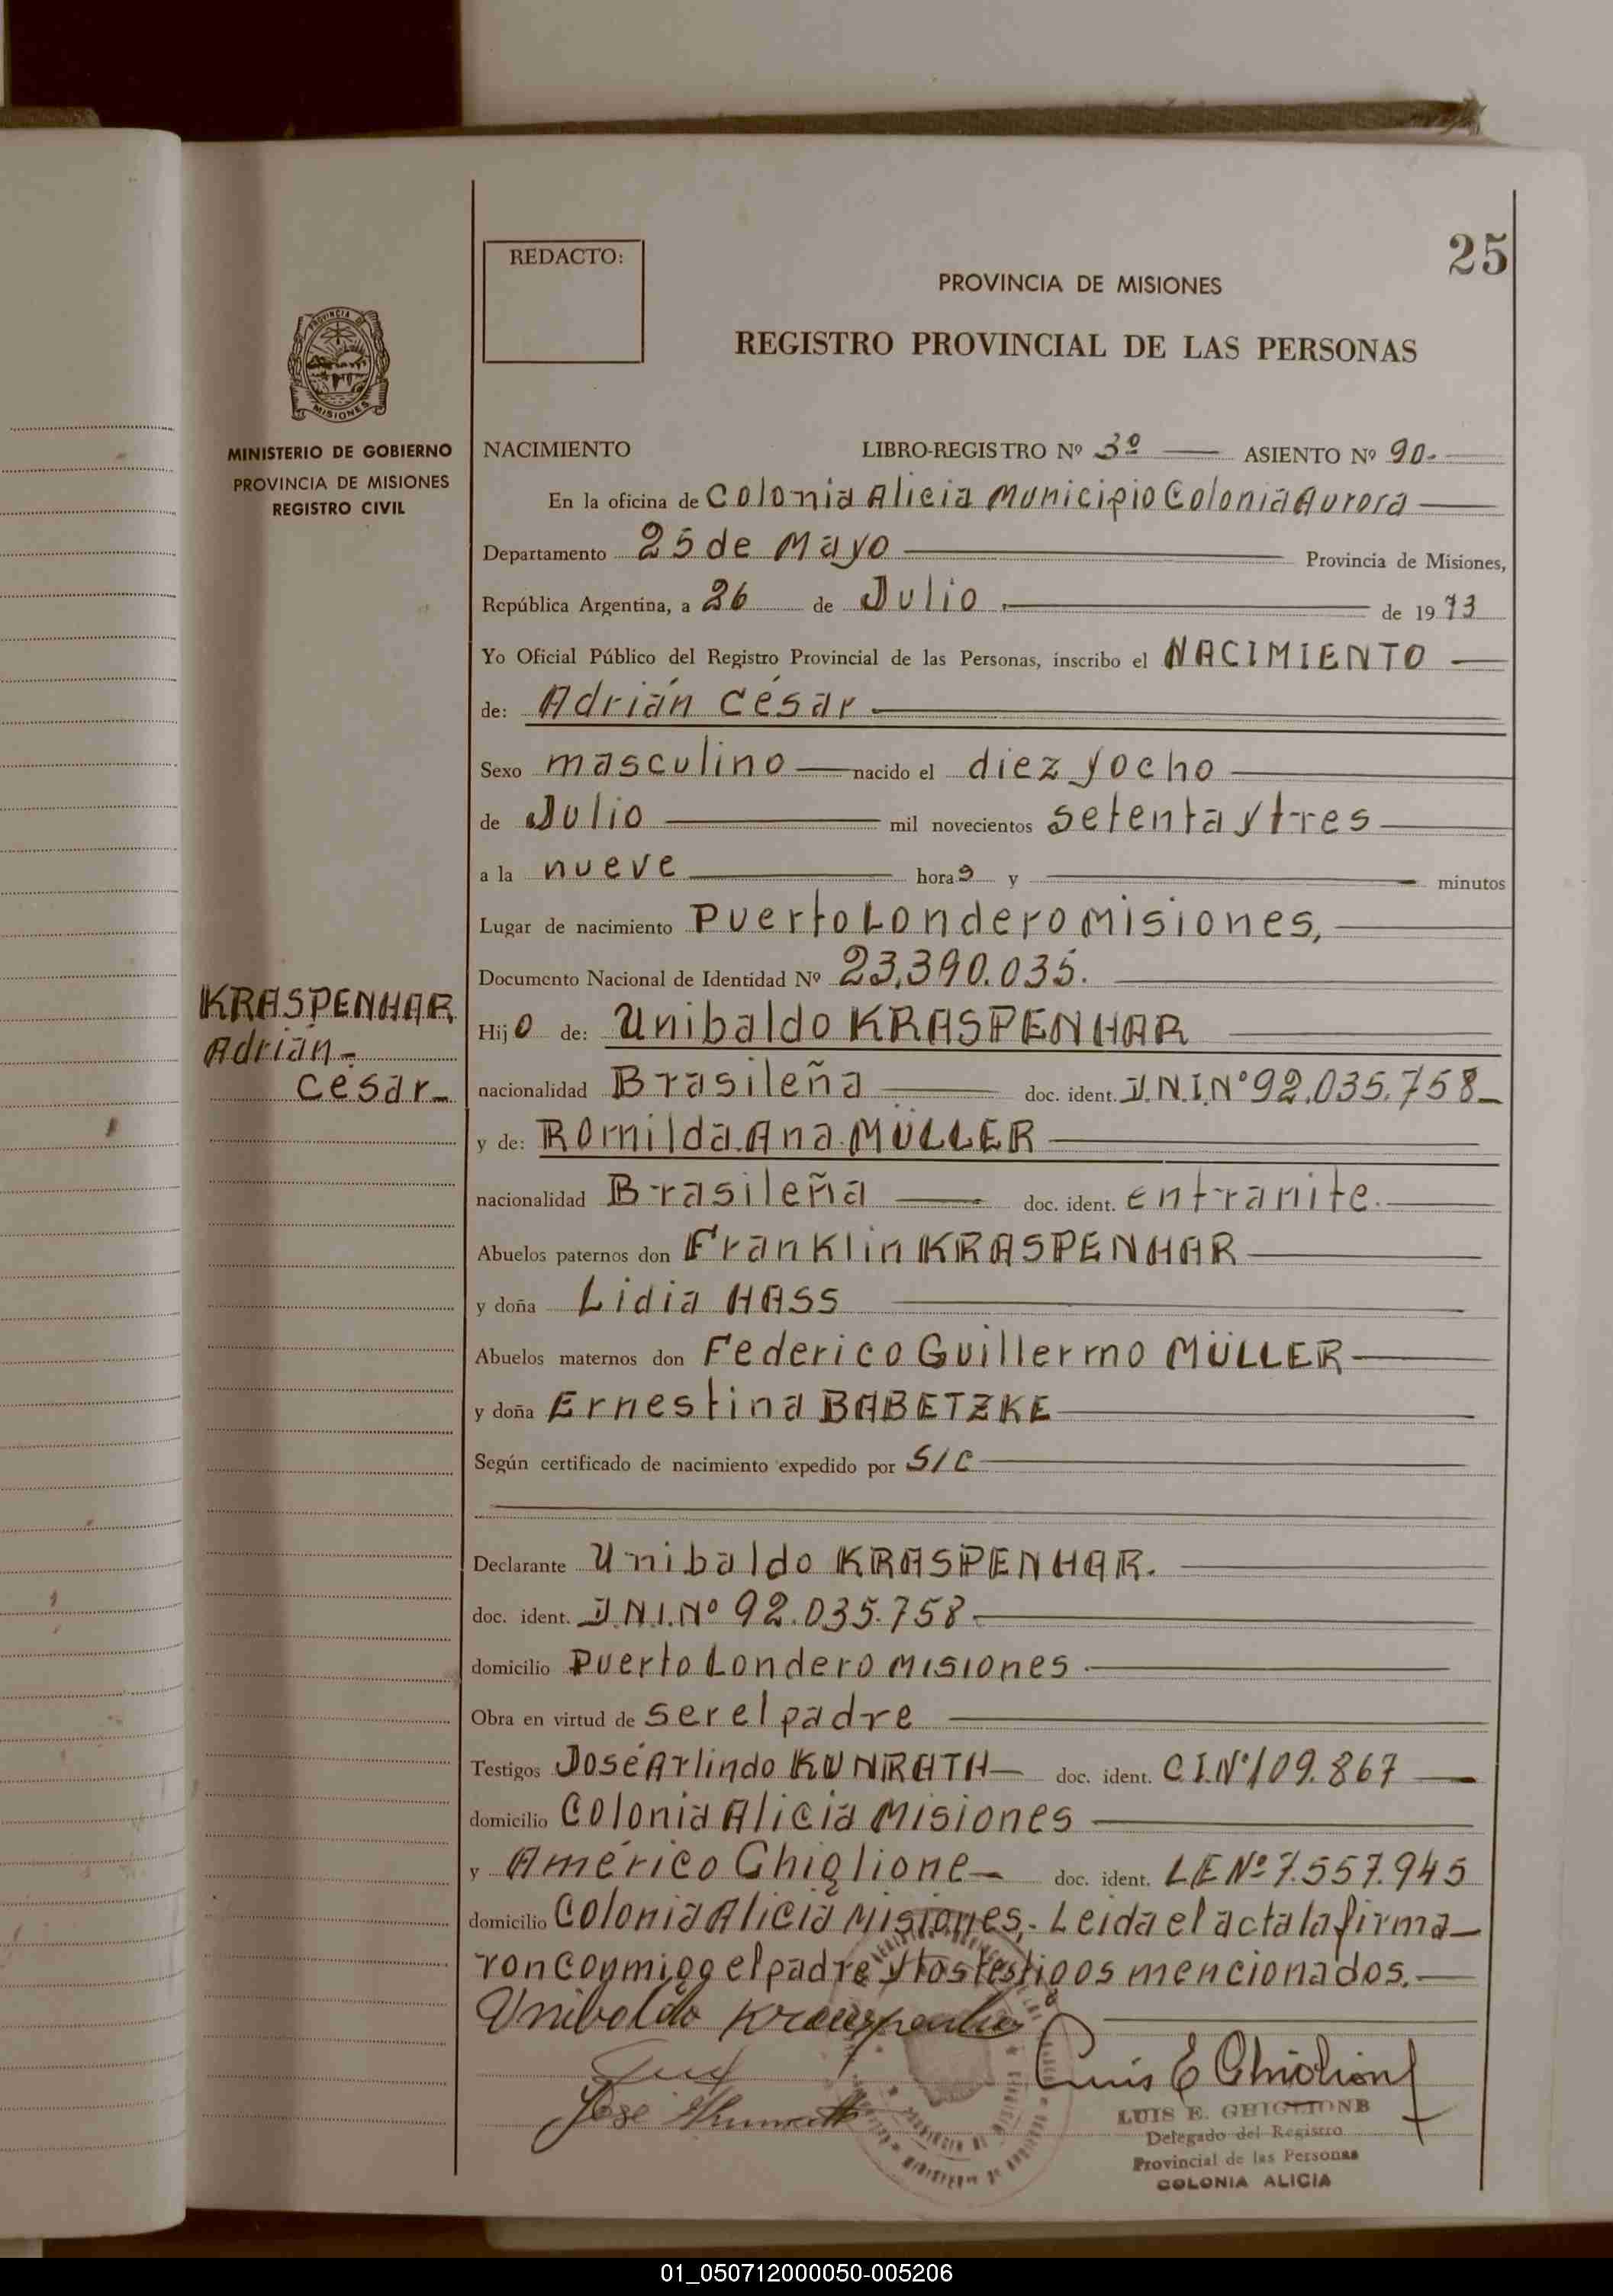 25
REDACTO:
PROVINCIA DE MISIONES
REGISTRO PROVINCIAL DE LAS PERSONAS
PROVINCIA DE
MISIONES
MINISTERIO DE GOBIERNO
PROVINCIA DE MISIONES
REGISTRO CIVIL
NACIMIENTO LIBRO-REGISTRO Nº 3º ASIENTO Nº 90.
En la oficina de Colonia Alicia Municipio Colonia Aurora
Departamento 25 de Mayo Provincia de Misiones,
República Argentina, a 26 de Julio de 1973
Yo Oficial Público del Registro Provincial de las Personas, inscribo el NACIMIENTO
de: Adrián César
Sexo masculino nacido el diez y ocho
de Julio mil novecientos setenta y tres
a la nueve horas y minutos
Lugar de nacimiento Puerto Londero Misiones,
Documento Nacional de Identidad Nº 23.390.035.
KRASPENHAR
Adrián-
César
Hijo de: Unibaldo KRASPENHAR
nacionalidad Brasileña doc. ident. D.N.I.Nº 92.035.758
y de: Romilda Ana MÜLLER
nacionalidad Brasileña doc. ident. en tramite.
Abuelos paternos don Franklin KRASPENHAR
y doña Lidia HASS
Abuelos maternos don Federico Guillermo MÜLLER
y doña Ernestina BABETZKE
Según certificado de nacimiento expedido por S/C
Declarante Unibaldo KRASPENHAR.
doc. ident. D.N.I.Nº 92.035.758
domicilio Puerto Londero Misiones
Obra en virtud de ser el padre
Testigos José Arlindo KUNRATH doc. ident. C.I.Nº 109.867
domicilio Colonia Alicia Misiones
y Américo Ghiglione doc. ident. LE Nº 7.557.945
domicilio Colonia Alicia Misiones.- Leida el acta la firma-
ron conmigo el padre y los testigos mencionados.
Unibaldo Krauspenhar
Luis E Ghiglione
José
LUIS E. GHIGLIONE
Delegado del Registro
Provincial de las Personas
COLONIA ALICIA
01_050712000050-005206